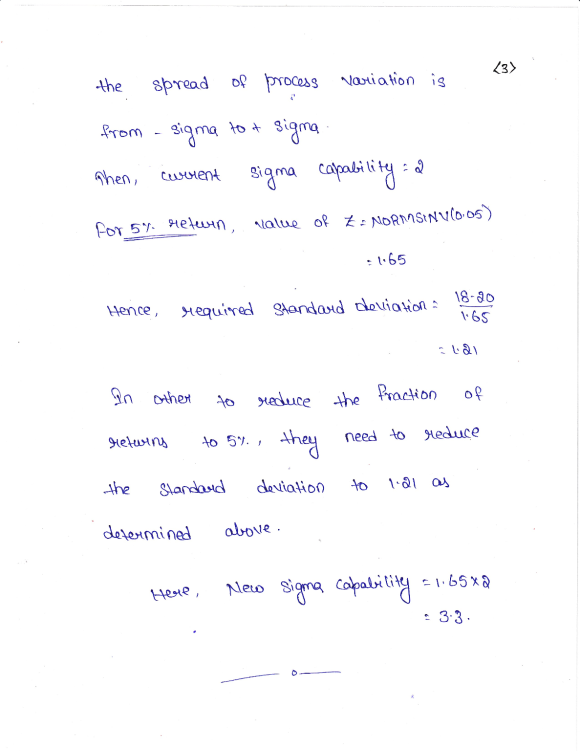 <3>
the spread of process variation is
from - sigma to + sigma.
Then, current sigma capability = 2
For 5% return, value of Z = NORMSINV(0.05)
= 1.65
Hence, required standard deviation = 18-20 / 1.65
= 1.21
In other to reduce the fraction of
returns to 5%, they need to reduce
the standard deviation to 1.21 as
determined above.
Here, New sigma capability = 1.65 x 2
= 3.3.